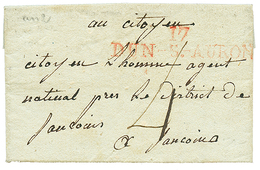 au citoyen
17
DUN S. AURON
citoyen l'homme agent
national pres le district de
Sancoins
4
a Sancoins